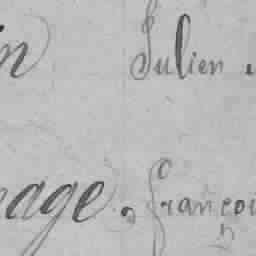 in Julien
nage. françoi